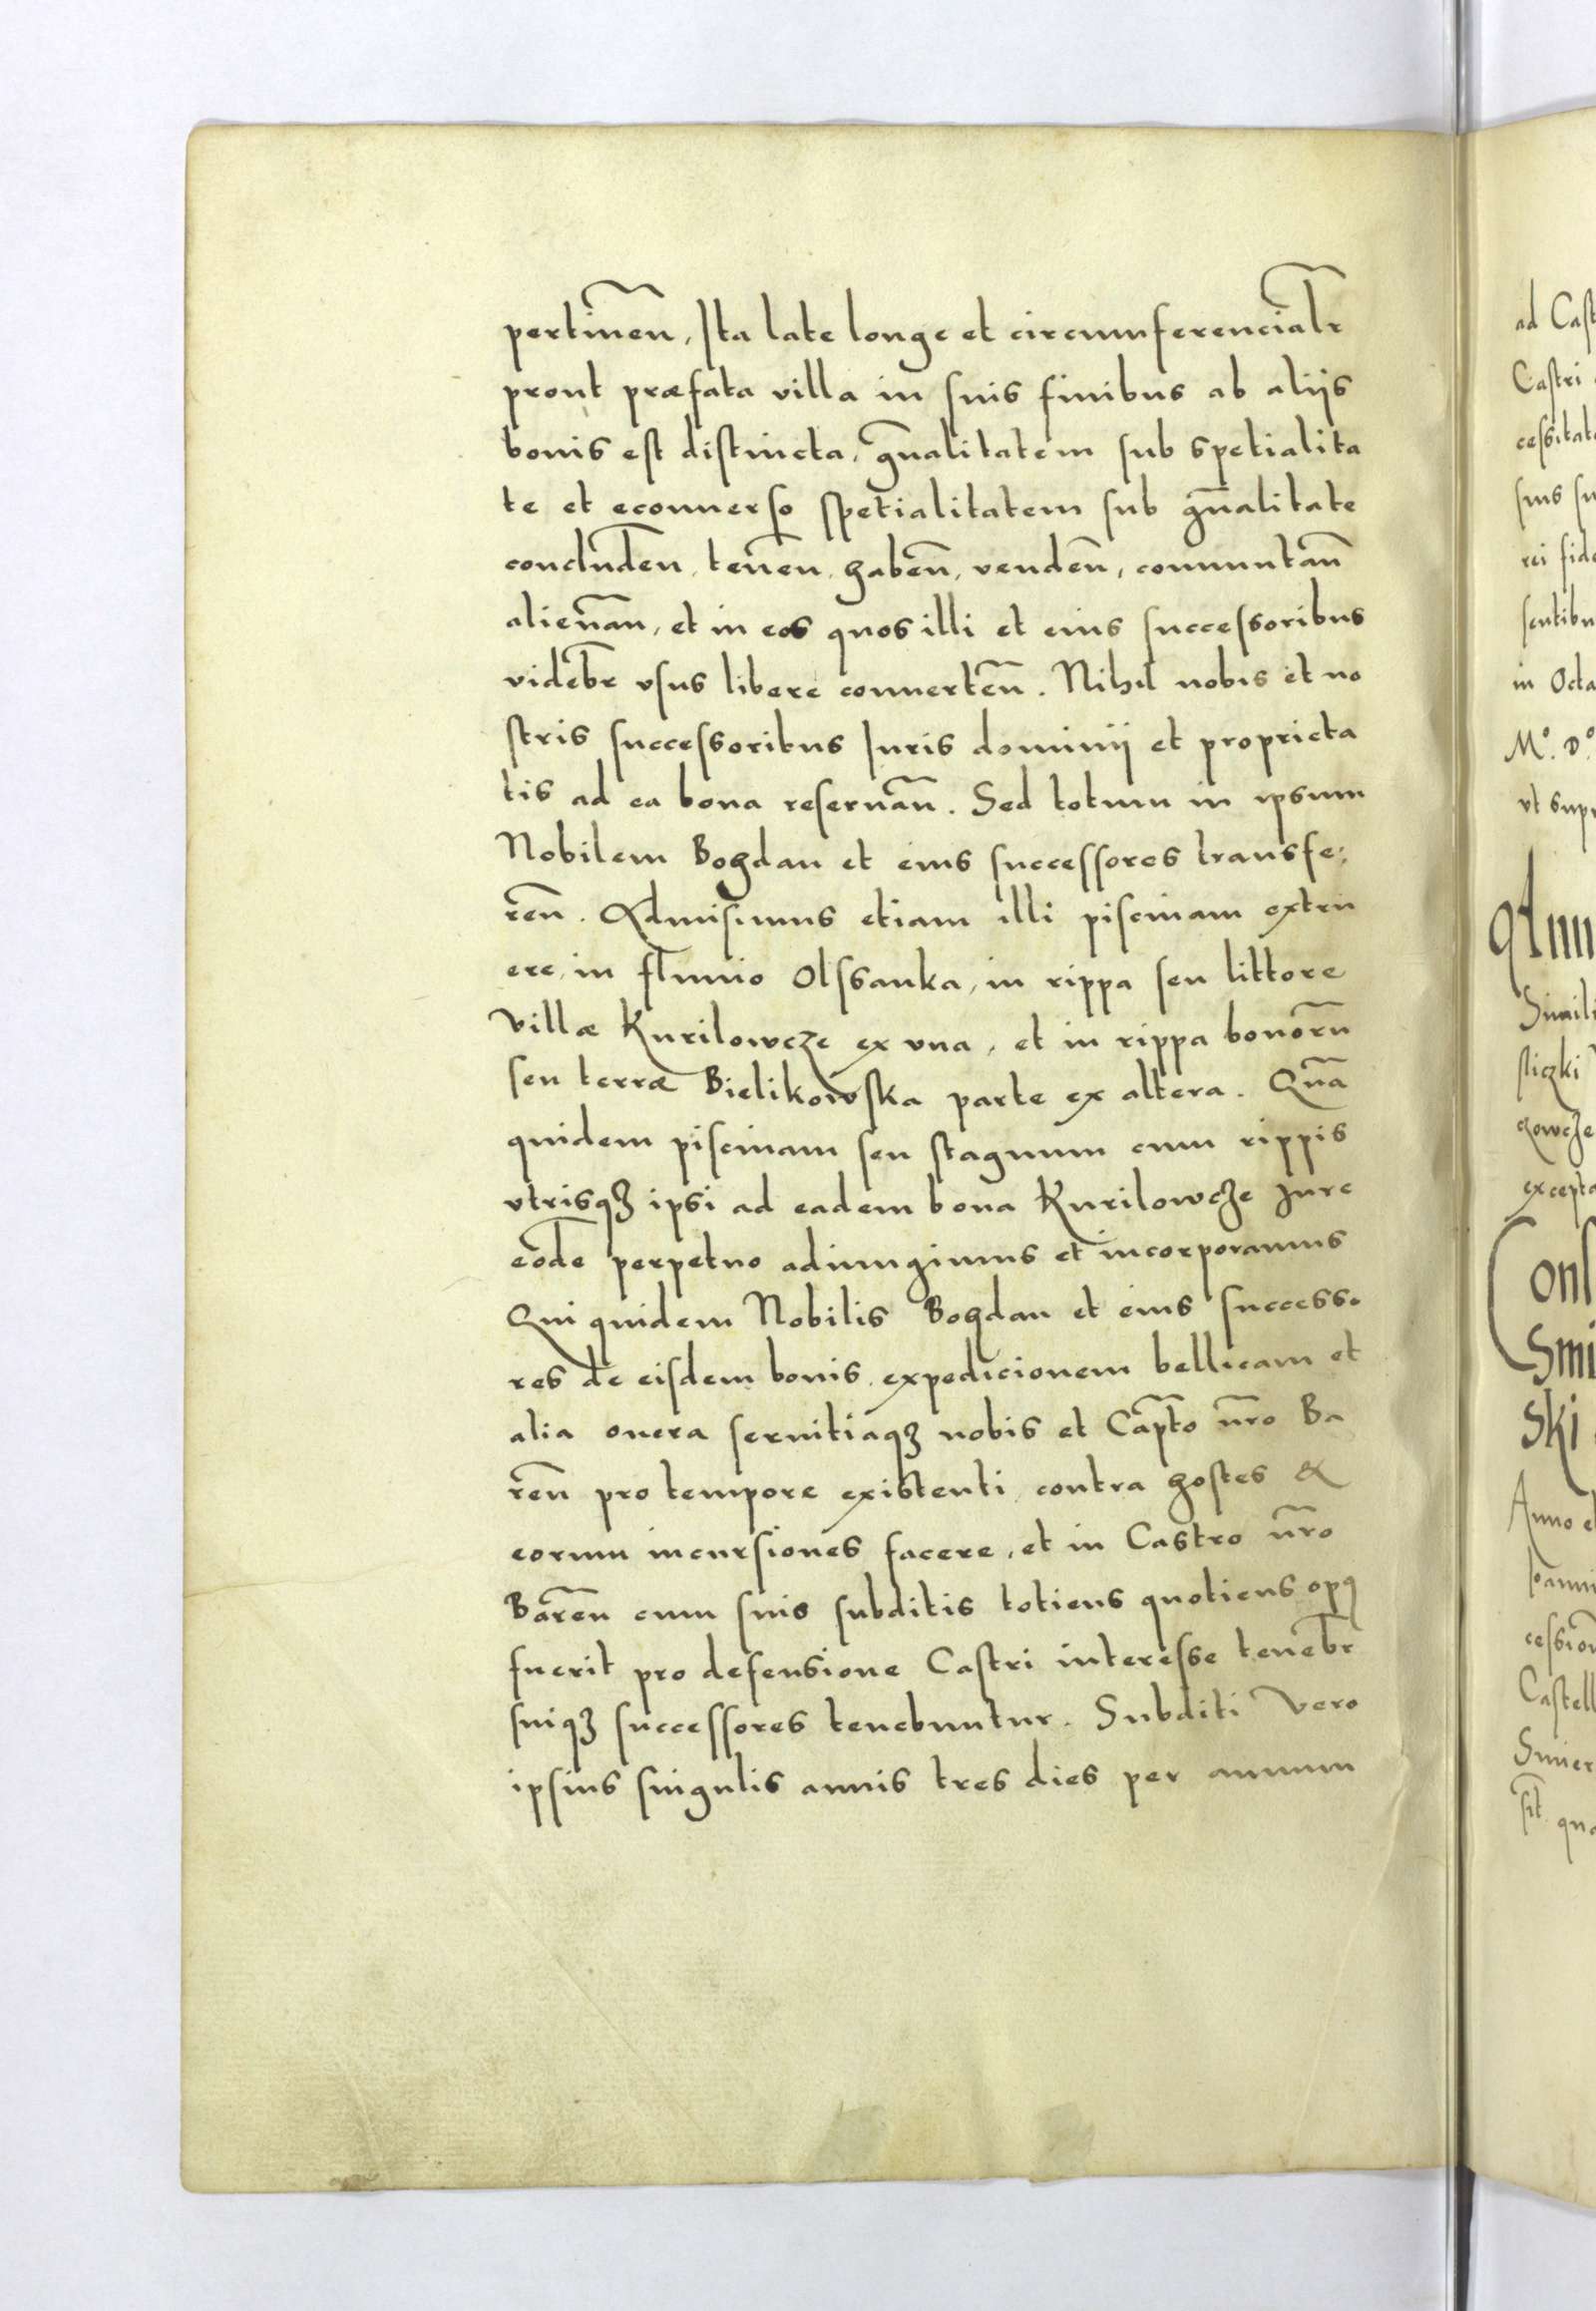 pertineñ, Ita late longe et circumferencialr̃
prout præfata villa in suis finibus ab aliis
bonis est distincta, gñalitatem sub spetialita
te et econuerso spetialitatem sub gñalitate
concludeñ, teneñ, habeñ, vendeñ, commutañ
alienañ, et in eos quos illi et eius successoribus
videbr̃ vsus libere conuerteñ. Nihil nobis et no
stris successoribus Iuris dominij et proprieta
tis ad ea bona reseruañ. Sed totum in ipsum
Nobilem Bohdan et eius successores transfe:
reñ. Admisimus etiam illi piscinam extru
ere, in fluuio Olssanka, in rippa seu littore
villæ Kurilowcze ex vna, et in rippa bonorũ
seu terræ Bielikowska parte ex altera. Quã
quidem piscinam seu stagnum cum rippis
vtrisqꝫ ipsi ad eadem bona Kurilowcze Jure
eodẽ perpetuo adiungimus et incorporamus
Qui quidem Nobilis Bohdan et eius successo
res de eisdem bonis, expedicionem bellicam et
alia onera seruitiaqꝫ nobis et Capt̃o nr̃o Ba
reñ pro tempore existenti, contra hostes &
eorum incursiones facere, et in Castro nr̃o
Bareñ cum suis subditis totiens quotiens opꝰ
fuerit pro defensione Castri interesse tenebr̃
suiqꝫ successores tenebuntur. Subditi vero
ipsius singulis annis tres dies per annum
ad Cast
Castri
cessitat
suis su
rei fid
sentibu
in Octa
Mº. Dº
vt supr
Ann
Simili
sticzki
cowcze
excepta
Cons
Smi
ski
Anno e
Ioanni
cession
Castell
qua